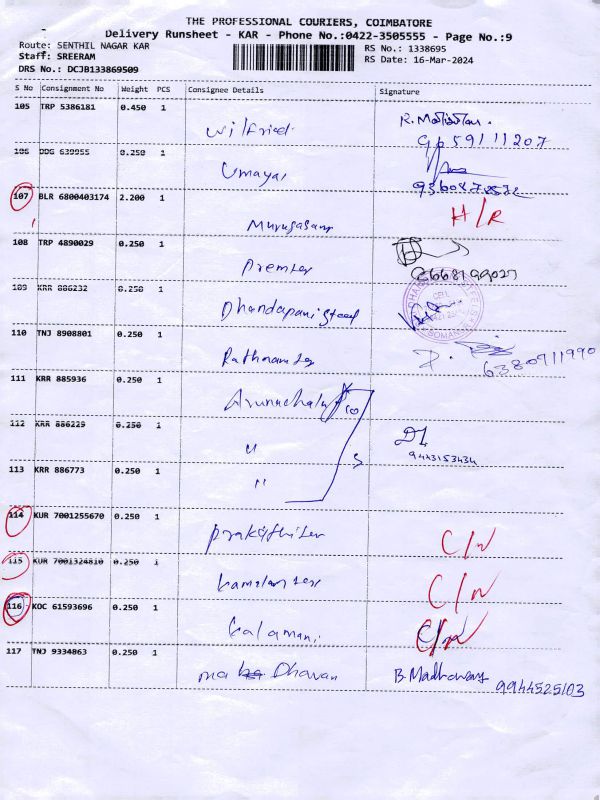 THE PROFESSIONAL COURIERS, COIMBATORE
Delivery Runsheet - KAR - Phone No.:0422-3505555 - Page No.:9
Route: SENTHIL NAGAR KAR
RS No.: 1338695
Staff: SREERAM
RS Date: 16-Mar-2024
DRS No.: DCJB133869509
S No Consignment No Weight PCS Consignee Details Signature
105 TRP 5386181 0.450 1 Wilfried R. 
59111207
106 DDG 639955 0.250 1 Umayal
107 BLR 6800403174 2.200 1 Murugasan H/R
108 TRP 4890029 0.250 1 Premtex
109 KRR 886232 0.250 1 Dhandapani Steel
110 TNJ 8908801 0.250 1 Rathnam tex
6380911990
111 KRR 885936 0.250 1 Arunachala
112 KRR 886229 0.250 1 "
9443153434
113 KRR 886773 0.250 1 "
114 KUR 7001255670 0.250 1 C/N
115 KUR 7001324810 0.250 1 C/N
116 KOC 61593696 0.250 1 Kalamani C/N
117 TNJ 9334863 0.250 1 Dhavan B. 
9944525103